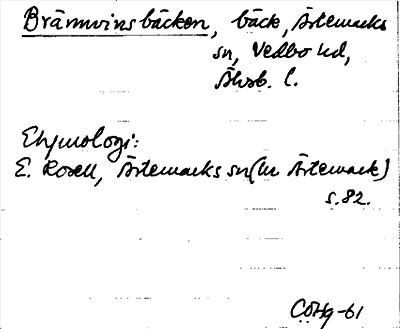 Brännvinsbäcken, bäck, Ärtemarks
sn, Vedbo hd,
Älvsb. l.
Etymologi:
E. Rosell, Ärtemarks sn (ur Ärtemark)
s. 82.
CÖHg-61